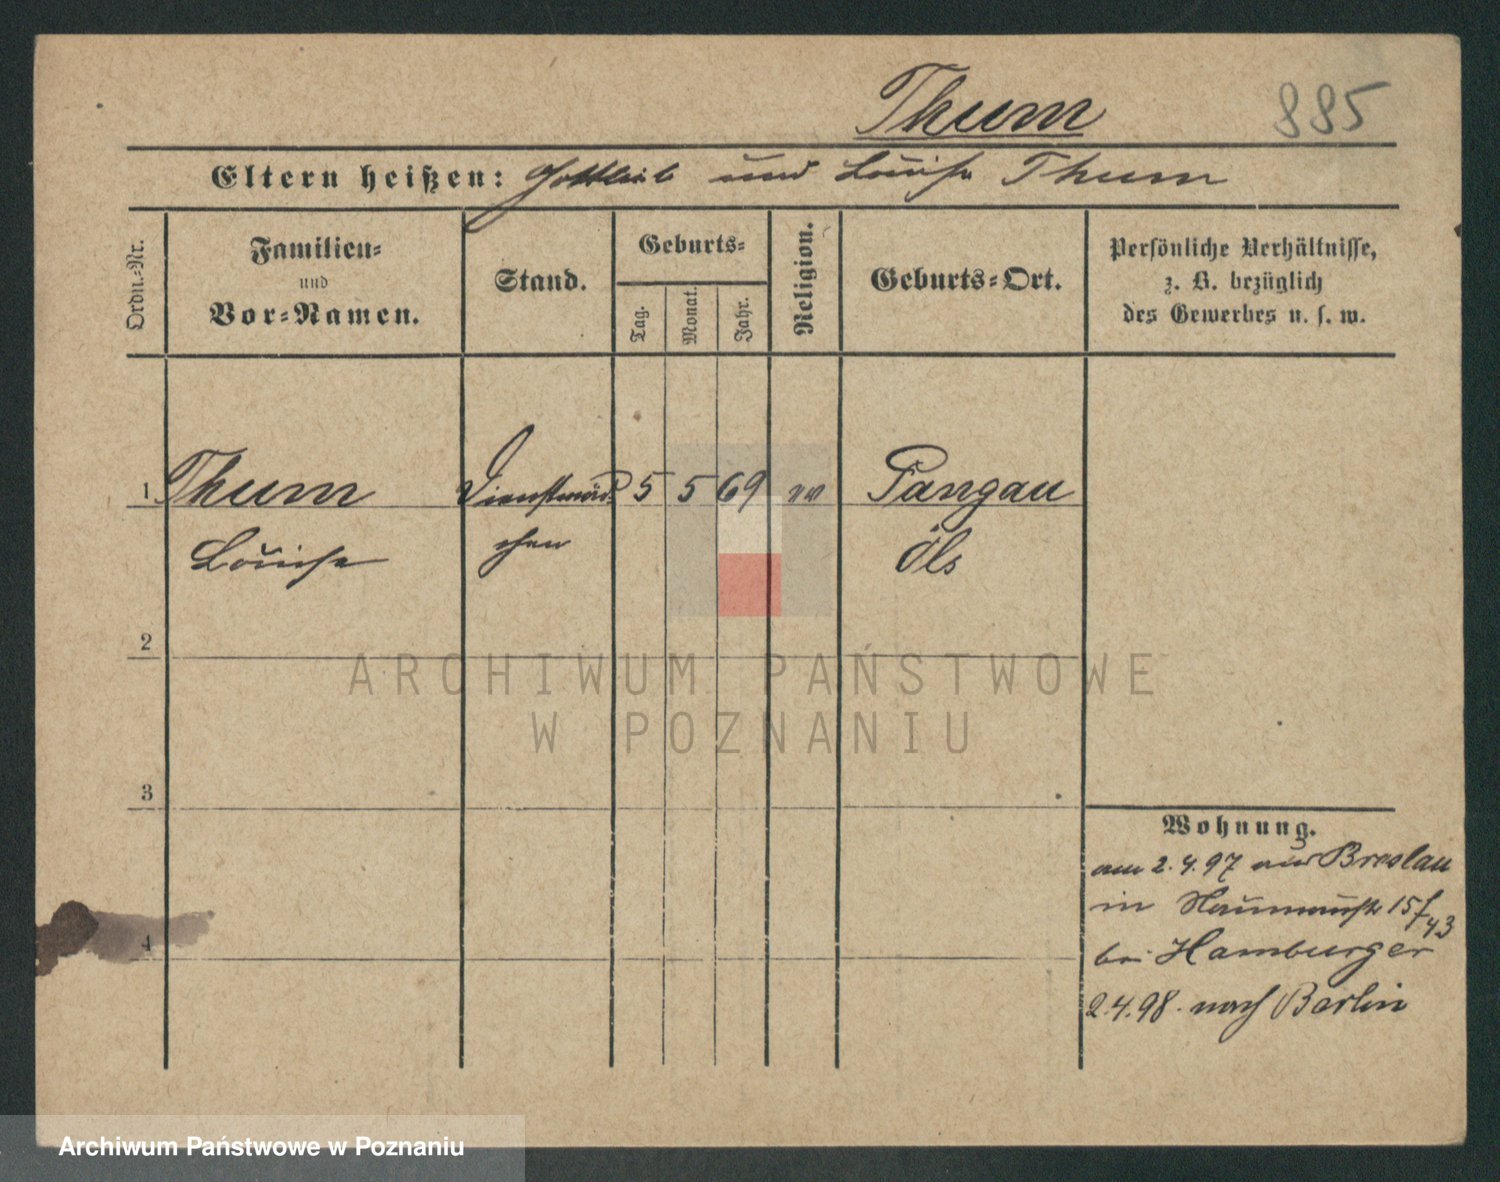 Thum
885
Eltern heißen: Gottlieb und Louise Thum
Ordn.-Nr.
Familien-
und
Vor-Namen.
Stand.
Geburts-
Tag.
Monat.
Jahr.
Religion.
Geburts-Ort.
Persönliche Verhältnisse,
z. B. bezüglich
des Gewerbes u. s. w.
1 Thum Dienstmäd- 5 5 69 ev Pangau
Louise chen Öls
2
3
4
Wohnung.
am 2.4.97 aus Breslau
in Naumannstr 15/43
bei Hamburger
2.4.98. nach Berlin
ARCHIWUM PAŃSTWOWE
W POZNANIU
Archiwum Państwowe w Poznaniu